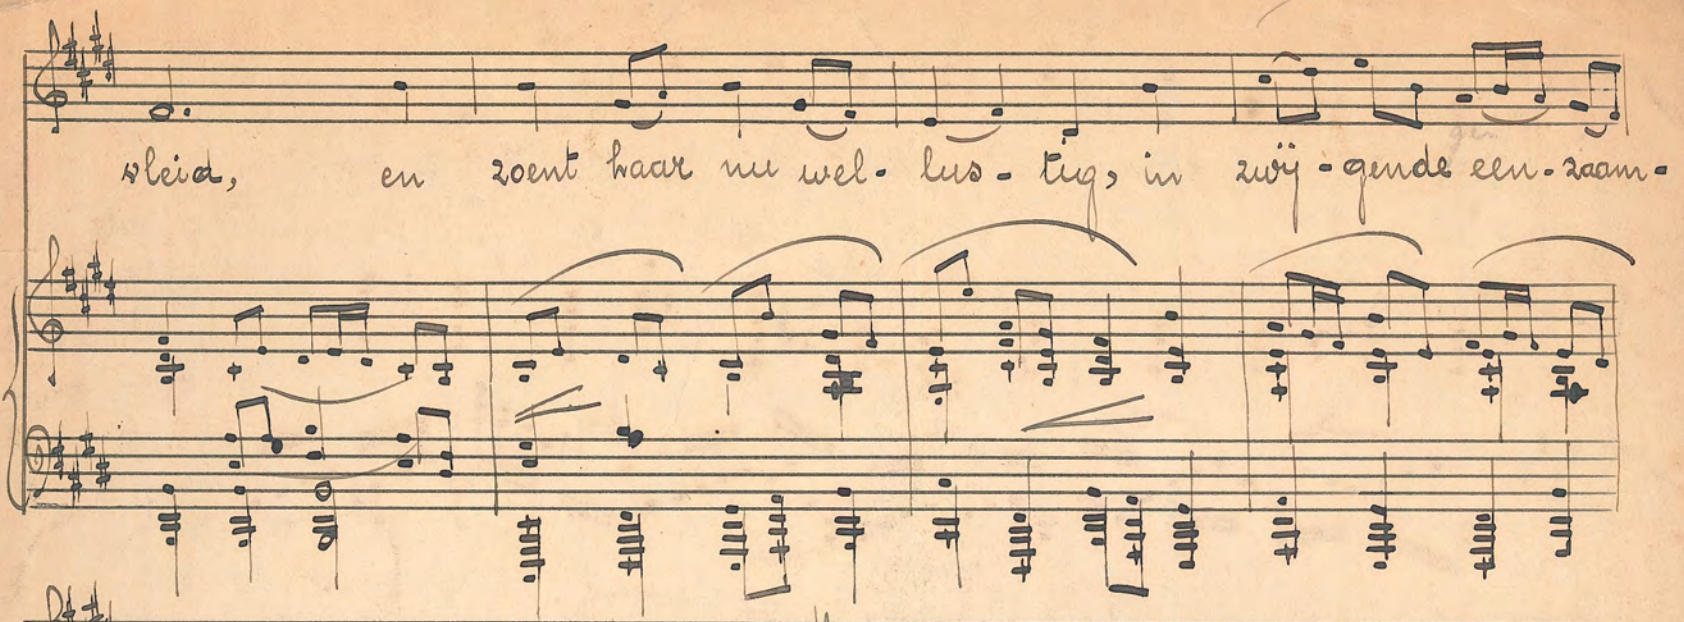 vleid, en zoent haar nu wel- lus- tig, in zwij-gende een-zaam-